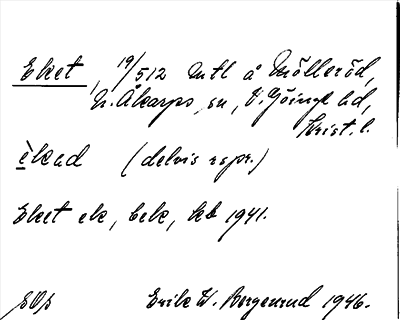 Eket, 19/512 mtl å Mölleröd,
N. Åkarps sn, V. Göinge hd,
Krist. l.
èkəd (delvis rspr.)
Eket ek, bek, kb 1941.
Erik W. Borgenrud 1946.